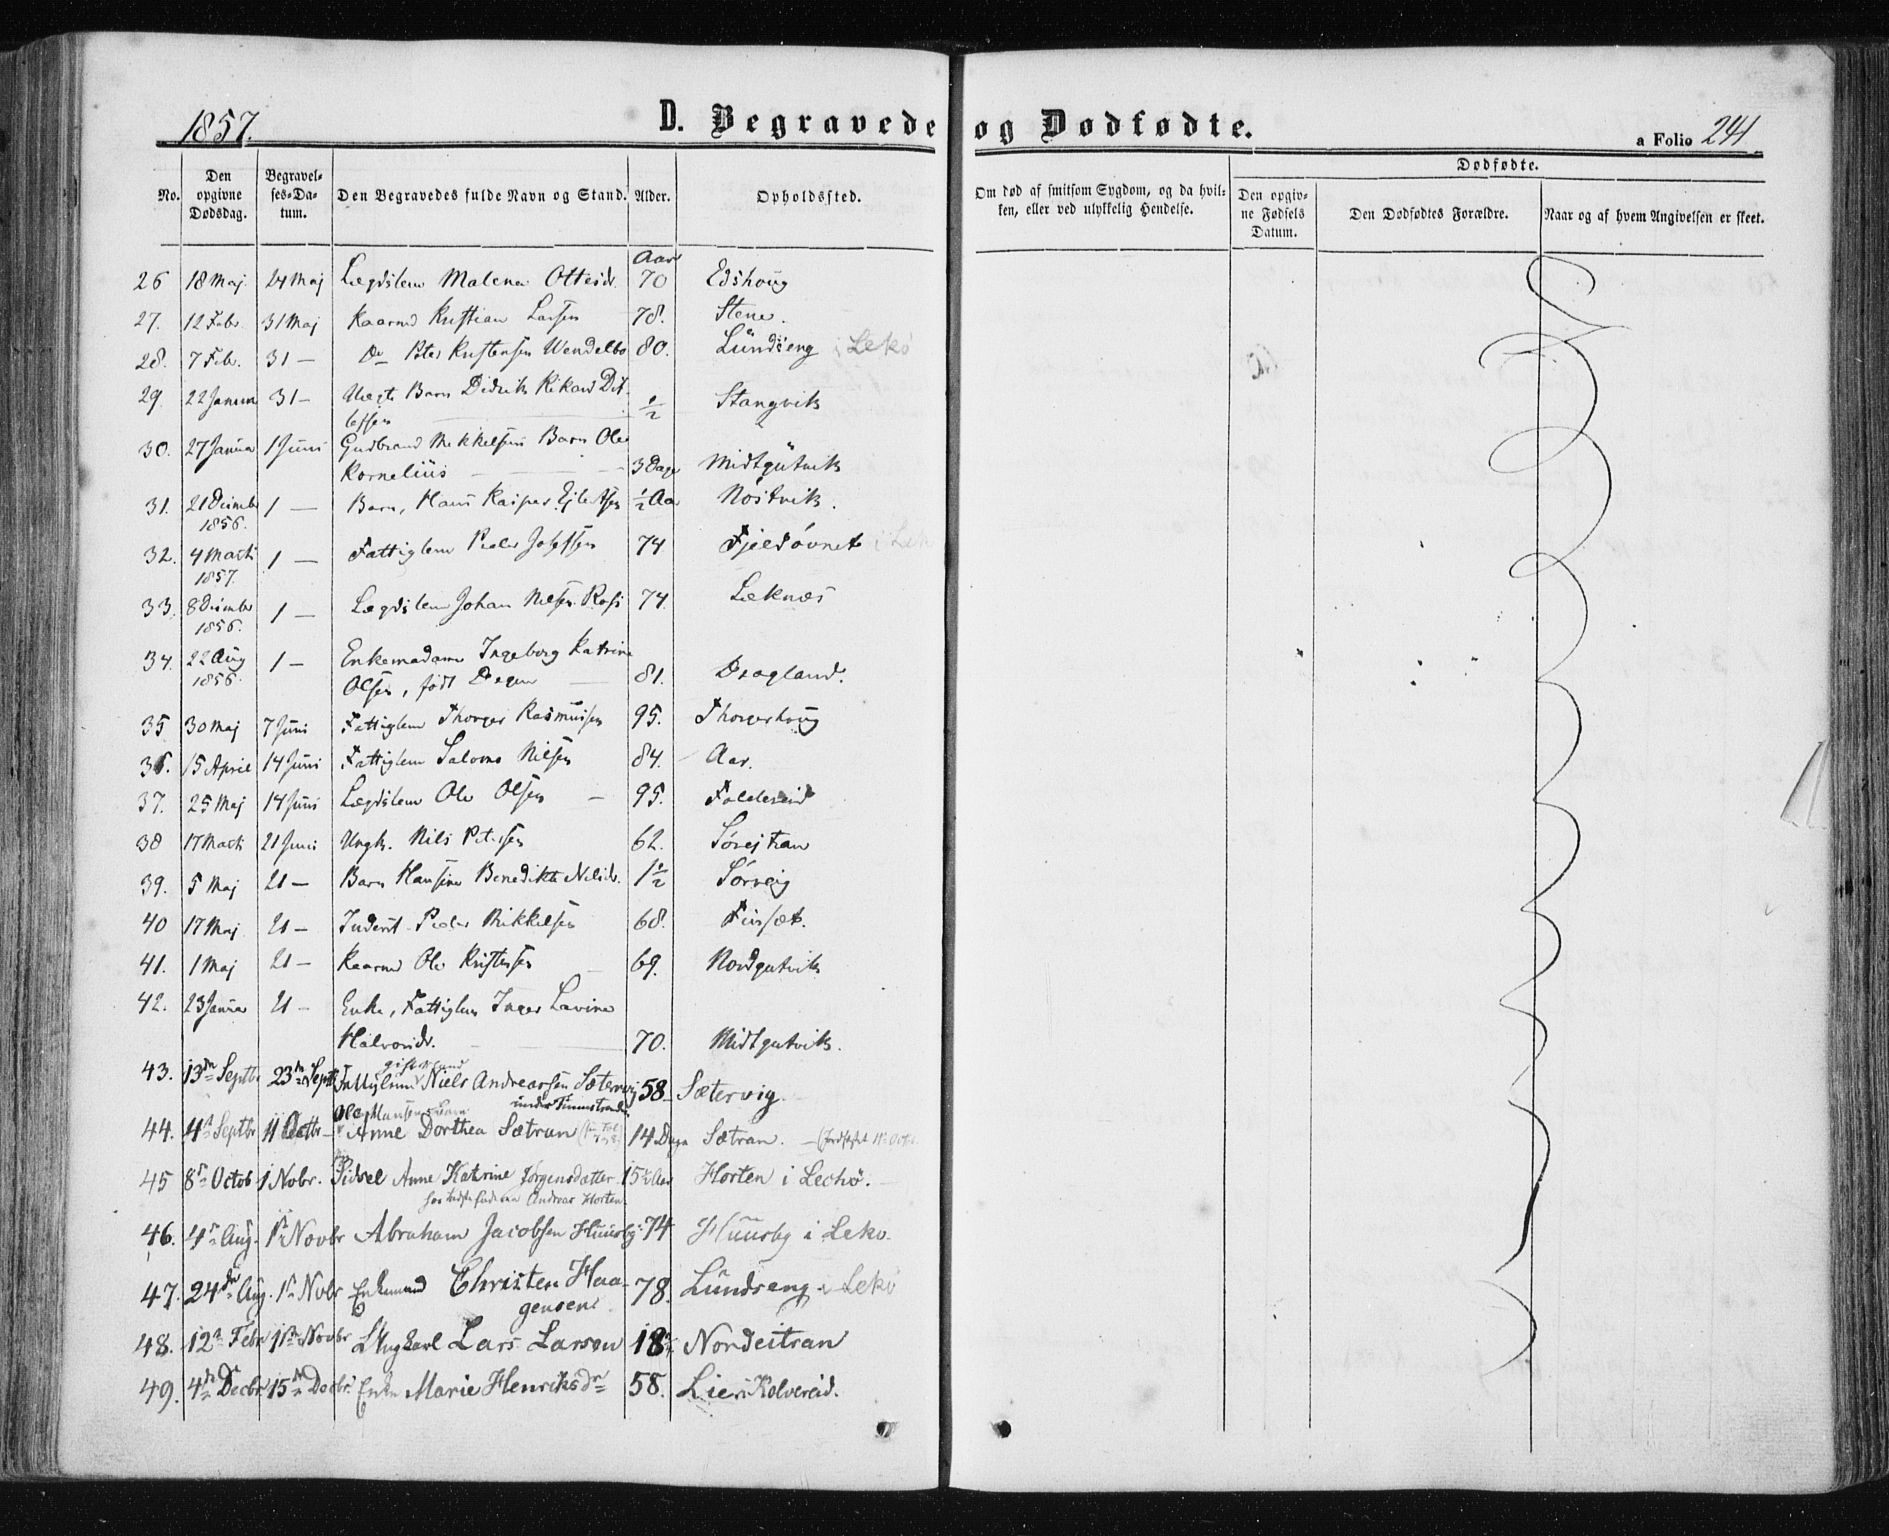 1857.
D. Begravede og Dødfødte.
a Folio 241
No.
Den opgivne Dødsdag.
Begravelses-Datum.
Den Begravedes fulde Navn og Stand.
Alder.
Opholdssted.
Om død af smitsom Sygdom, og da hvilken, eller ved ulykkelig Hendelse.
Dødfødte.
Den opgivne Fødsels Datum.
Den Dødfødtes Forældre.
Naar og af hvem Angivelsen er skeet.
Aar
26 18 Maj 24 Maj Lægdslem Malena Ottesdr. 70 Edshoug
27. 12 Febr. 31 Maj Kaarmd Kristian Larsen 78. Stene.
28. 7 Feb. 31 — Do Peter Kristensen Wendelbo 80. Lundseng i Lekø
29. 22 Januar 31 — Uægte Barn Didrik Rikard Dit-
lefsen ½ Stangvik
30. 27 Janua 1 Juni Gudbrand Mikkelsens Barn Ole
Kornelius 3 Dage Midtgutvik
31. 21 Decimbr 1 — Barn, Hans Kasper Ejlertsen ½ Aar Nøstvik.
1856.
32. 4 Marts 1 — Fattiglem Peder Josefsen 74 Fjeldøvnet i Lek
1857.
33. 8 Decimber 1 — Lægdslem Johan Nilsen Rosi 74 Leknæs
1856.
34. 22 Aug 1 — Enkemadame Ingeborg Katrine
1856. Olsen, født 81. Dragland.
35. 30 Maj 7 Juni Fattiglem Thorger Rasmussen 95. Thorgerhoug
36. 15 April 14 Juni Fattiglem Salomo Nilsen 84. Aar.
37. 25 Maj 14 Juni Lægdslem Ole Olsen — 95. Foldereid
38 17 Marts 21 Juni Ungk. Nils Petersen 62. Sørejtran
39. 5 Maj 21 — Barn Hansine Benedikte Nilsdr. 1½ Sørveig
40 17 Maj 21 — Inderst Peder Mikkelsen 68. Finsæt.
41. 1 Maj 21 — Kaarmd Ole Kristensen 69. Nordgutvik
42. 23 Janua 21 — Enke, Fattiglem Inger Lavina
Halvorsdr. 70. Midtgutvik.
gift Mand
43. 13de Septbr 23de Septb Fattiglem Niels Andreassen Sætervig 58 Sætervig.
Ole Hansens Barn
44. 4de Septbr 11 Octbr Anne Dorthea Sætran 14 Dage Sætran. — (Jordfæstet 11te Octbr.
45 8de Octob 1 Nobr. Pidsel Anne Katrine Jørgensdatter 15½ Aar Horten i Lechø.
Andreas Horten.
46. 4de Aug. 1ste Novbr Abraham Jacobsen Huusby 74 Huusby i Leko.
47. 24de Aug. 1ste Nobr Enkemand Christen Haa-
gensen 78. Lundseng i Lekø
48. 12te Febr 1ste Novbr Ungkarl Lars Larsen 18½ Nordeitran
49. 4de Decbr 15de Decbr Enke Marie Henriksdr 58. Lie i Kolvereid.